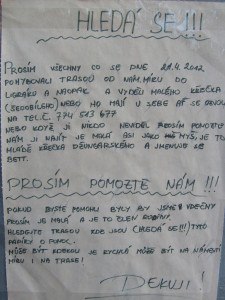 HLEDÁ SE!!!
PROSÍM VŠECHNY CO SE DNE 21.4.2012
POHYBOVALI TRASOU OD NÁM.MÍRU DO
A VIDĚLI MALÉHO KŘEČKA
NEBO HO MAJÍ U SEBE AŤ SE
NA TEL.Č. 774 513 677
NEBO KDYŽ JI NIKDO NEVIDĚL PROSÍM POMOZTE
NÁM JI NAJÍT JE MALÁ ASI JAKO MYŠ, JE TO
MLÁDĚ KŘEČKA DŽUNGARSKÉHO A JMENUJE SE
BETT.
PROSÍM POMOZTE NÁM!!!
POKUD BYSTE POMOHLI BYLI BY JSME VDĚČNÝ
PROSÍM JE MALÁ A JE TO ČLEN RODINY.
HLEDEJTE TRASOU KDE JSOU (HLEDÁ SE!!!) TYTO
PAPÍRKY O POMOC.
MŮŽE BÝT KDEKOLI JE RYCHLÁ MŮŽE BÝT NA NÁMĚSTÍ
MÍRU I NA TRASE!
DĚKUJI!